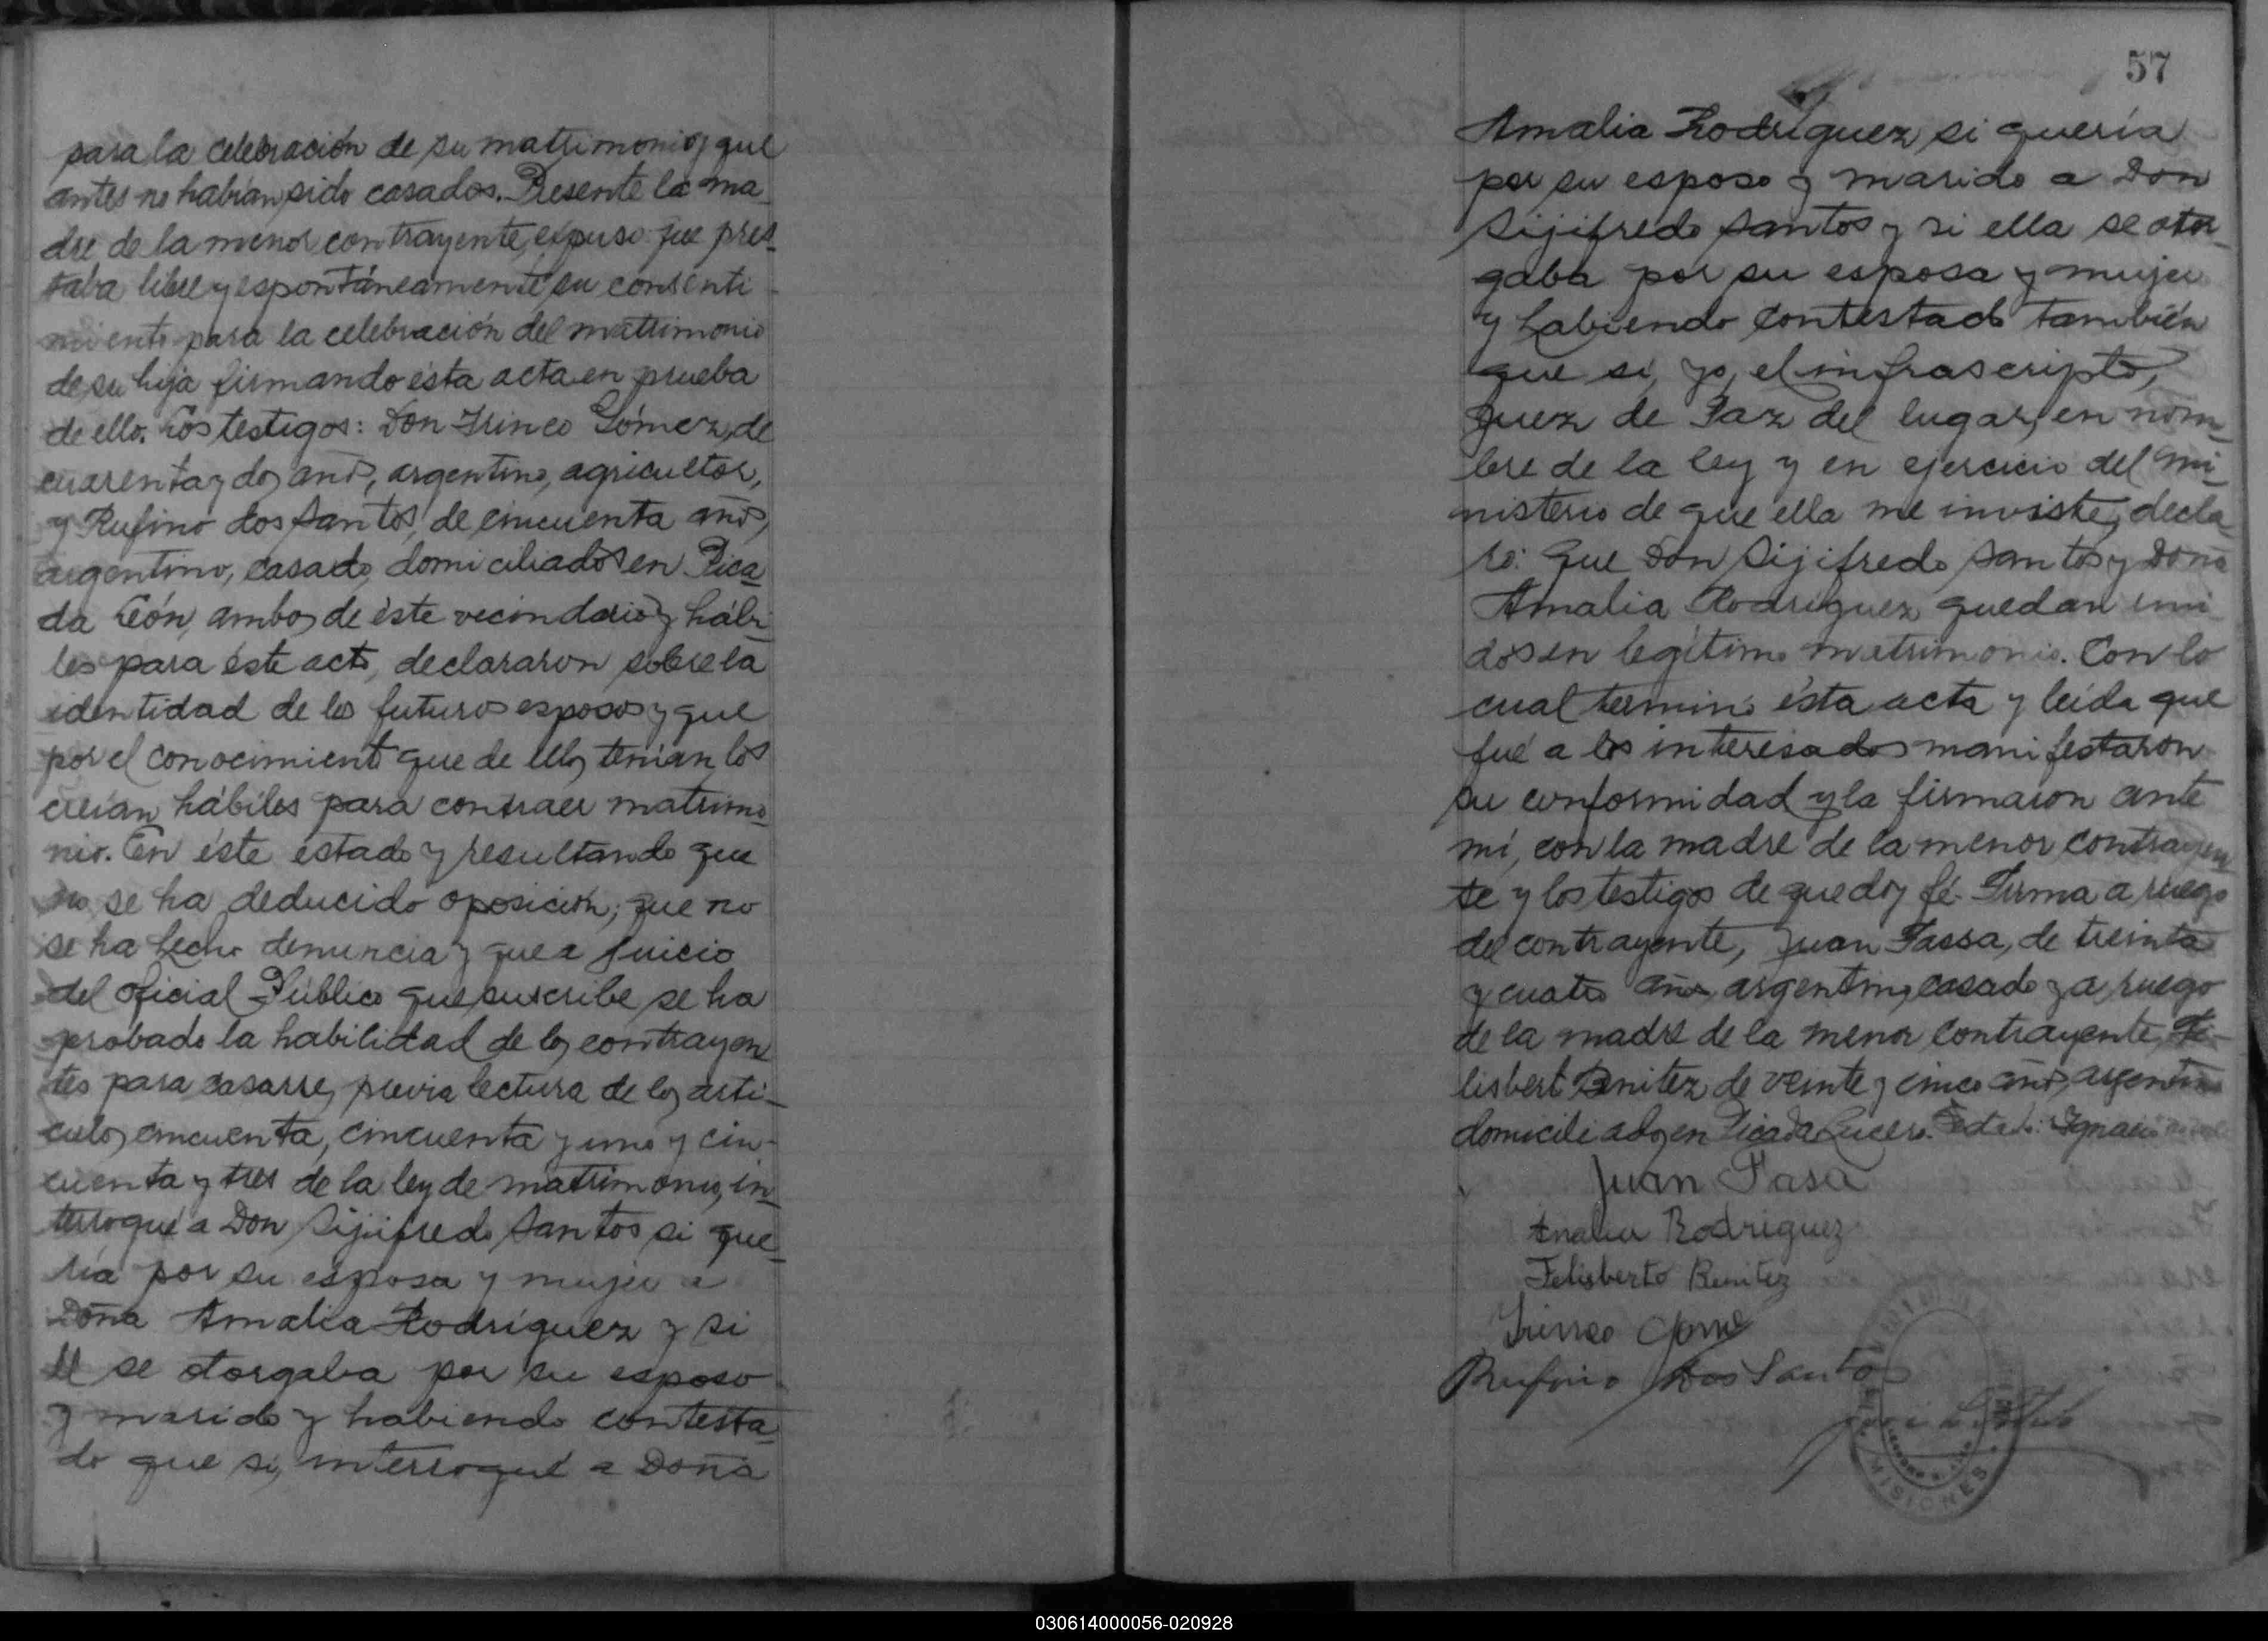 para la celebración de su matrimonio y que
antes no habían sido casados. Presente la ma-
dre de la menor contrayente, expuso: que pres-
taba libre y espontáneamente su consenti-
miento para la celebración del matrimonio
de su hija firmando ésta acta en prueba
de ello. Los testigos: Don Irineo Gómez, de
cuarenta y dos años, argentino, agricultor,
y Rufino dos Santos, de cincuenta años,
argentino, casado, domiciliados en Pica-
da León, ambos de éste vecindario y hábi-
les para éste acto, declararon sobre la
identidad de los futuros esposos y que
por el conocimiento que de ellos tenían, los
creían hábiles para contraer matrimo-
nio. En éste estado y resultando que
no se ha deducido oposición; que no
se ha hecho denuncia y que a juicio
del oficial Público que suscribe se ha
probado la habilidad de los contrayen
tes para casarse, previa lectura de los artí-
culos cincuenta, cincuenta y uno y cin-
cuenta y tres de la ley de matrimonio, in-
terrogué a Don Sijifredo Santos si que-
ría por su esposa y mujer a
Doña Amalia Rodríguez y si
él se otorgaba por su esposo
y marido y habiendo contesta-
do que sí, interrogué a Doña
57
Amalia Rodríguez si quería
por su esposo y marido a Don
Sijifredo Santos y si ella se otor-
gaba por su esposa y mujer
y habiendo contestado también
que sí, yo, el infrascripto,
Juez de Paz del lugar, en nom-
bre de la ley y en ejercicio del mi-
nisterio de que ella me inviste, decla-
ro: Que Don Sijifredo Santos y Doña
Amalia Rodríguez quedan uni
dos en legítimo matrimonio. Con lo
cual terminó ésta acta y leída que
fué a los interesados manifestaron
su conformidad y la firmaron ante
mí, con la madre de la menor contrayen
te y los testigos de que doy fé. Firma a ruego
del contrayente, Juan Fassa, de treinta
y cuatro años, argentino, casado y a ruego
de la madre de la menor contrayente, Fe-
lisbert Benitez de veinte y cinco años, argentino
domiciliados en Picada Lucero. Ignacio
Juan Fasa
Analia Rodriguez
Felisberto Benitez
Irineo Gome
Rufino Dos Santos
MISIONES
030614000056-020928